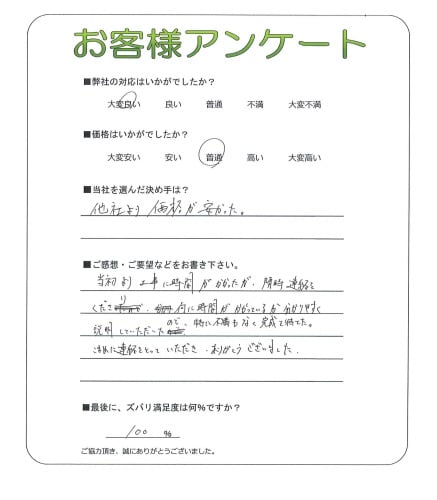 お客様アンケート
■弊社の対応はいかがでしたか？
大変良い 良い 普通 不満 大変不満
■価格はいかがでしたか？
大変安い 安い 普通 高い 大変高い
■当社を選んだ決め手は？
他社より価格が安かった。
■ご感想・ご要望などをお書き下さい。
当初より工事に時間がかかったが、随時連絡を
くださり 何に時間がかかっているか分かりやすく
説明していただいたので、特に不満もなく完成を待てた。
連絡をとっていただき、ありがとうございました。
■最後に、ズバリ満足度は何％ですか？
100 ％
ご協力頂き、誠にありがとうございました。